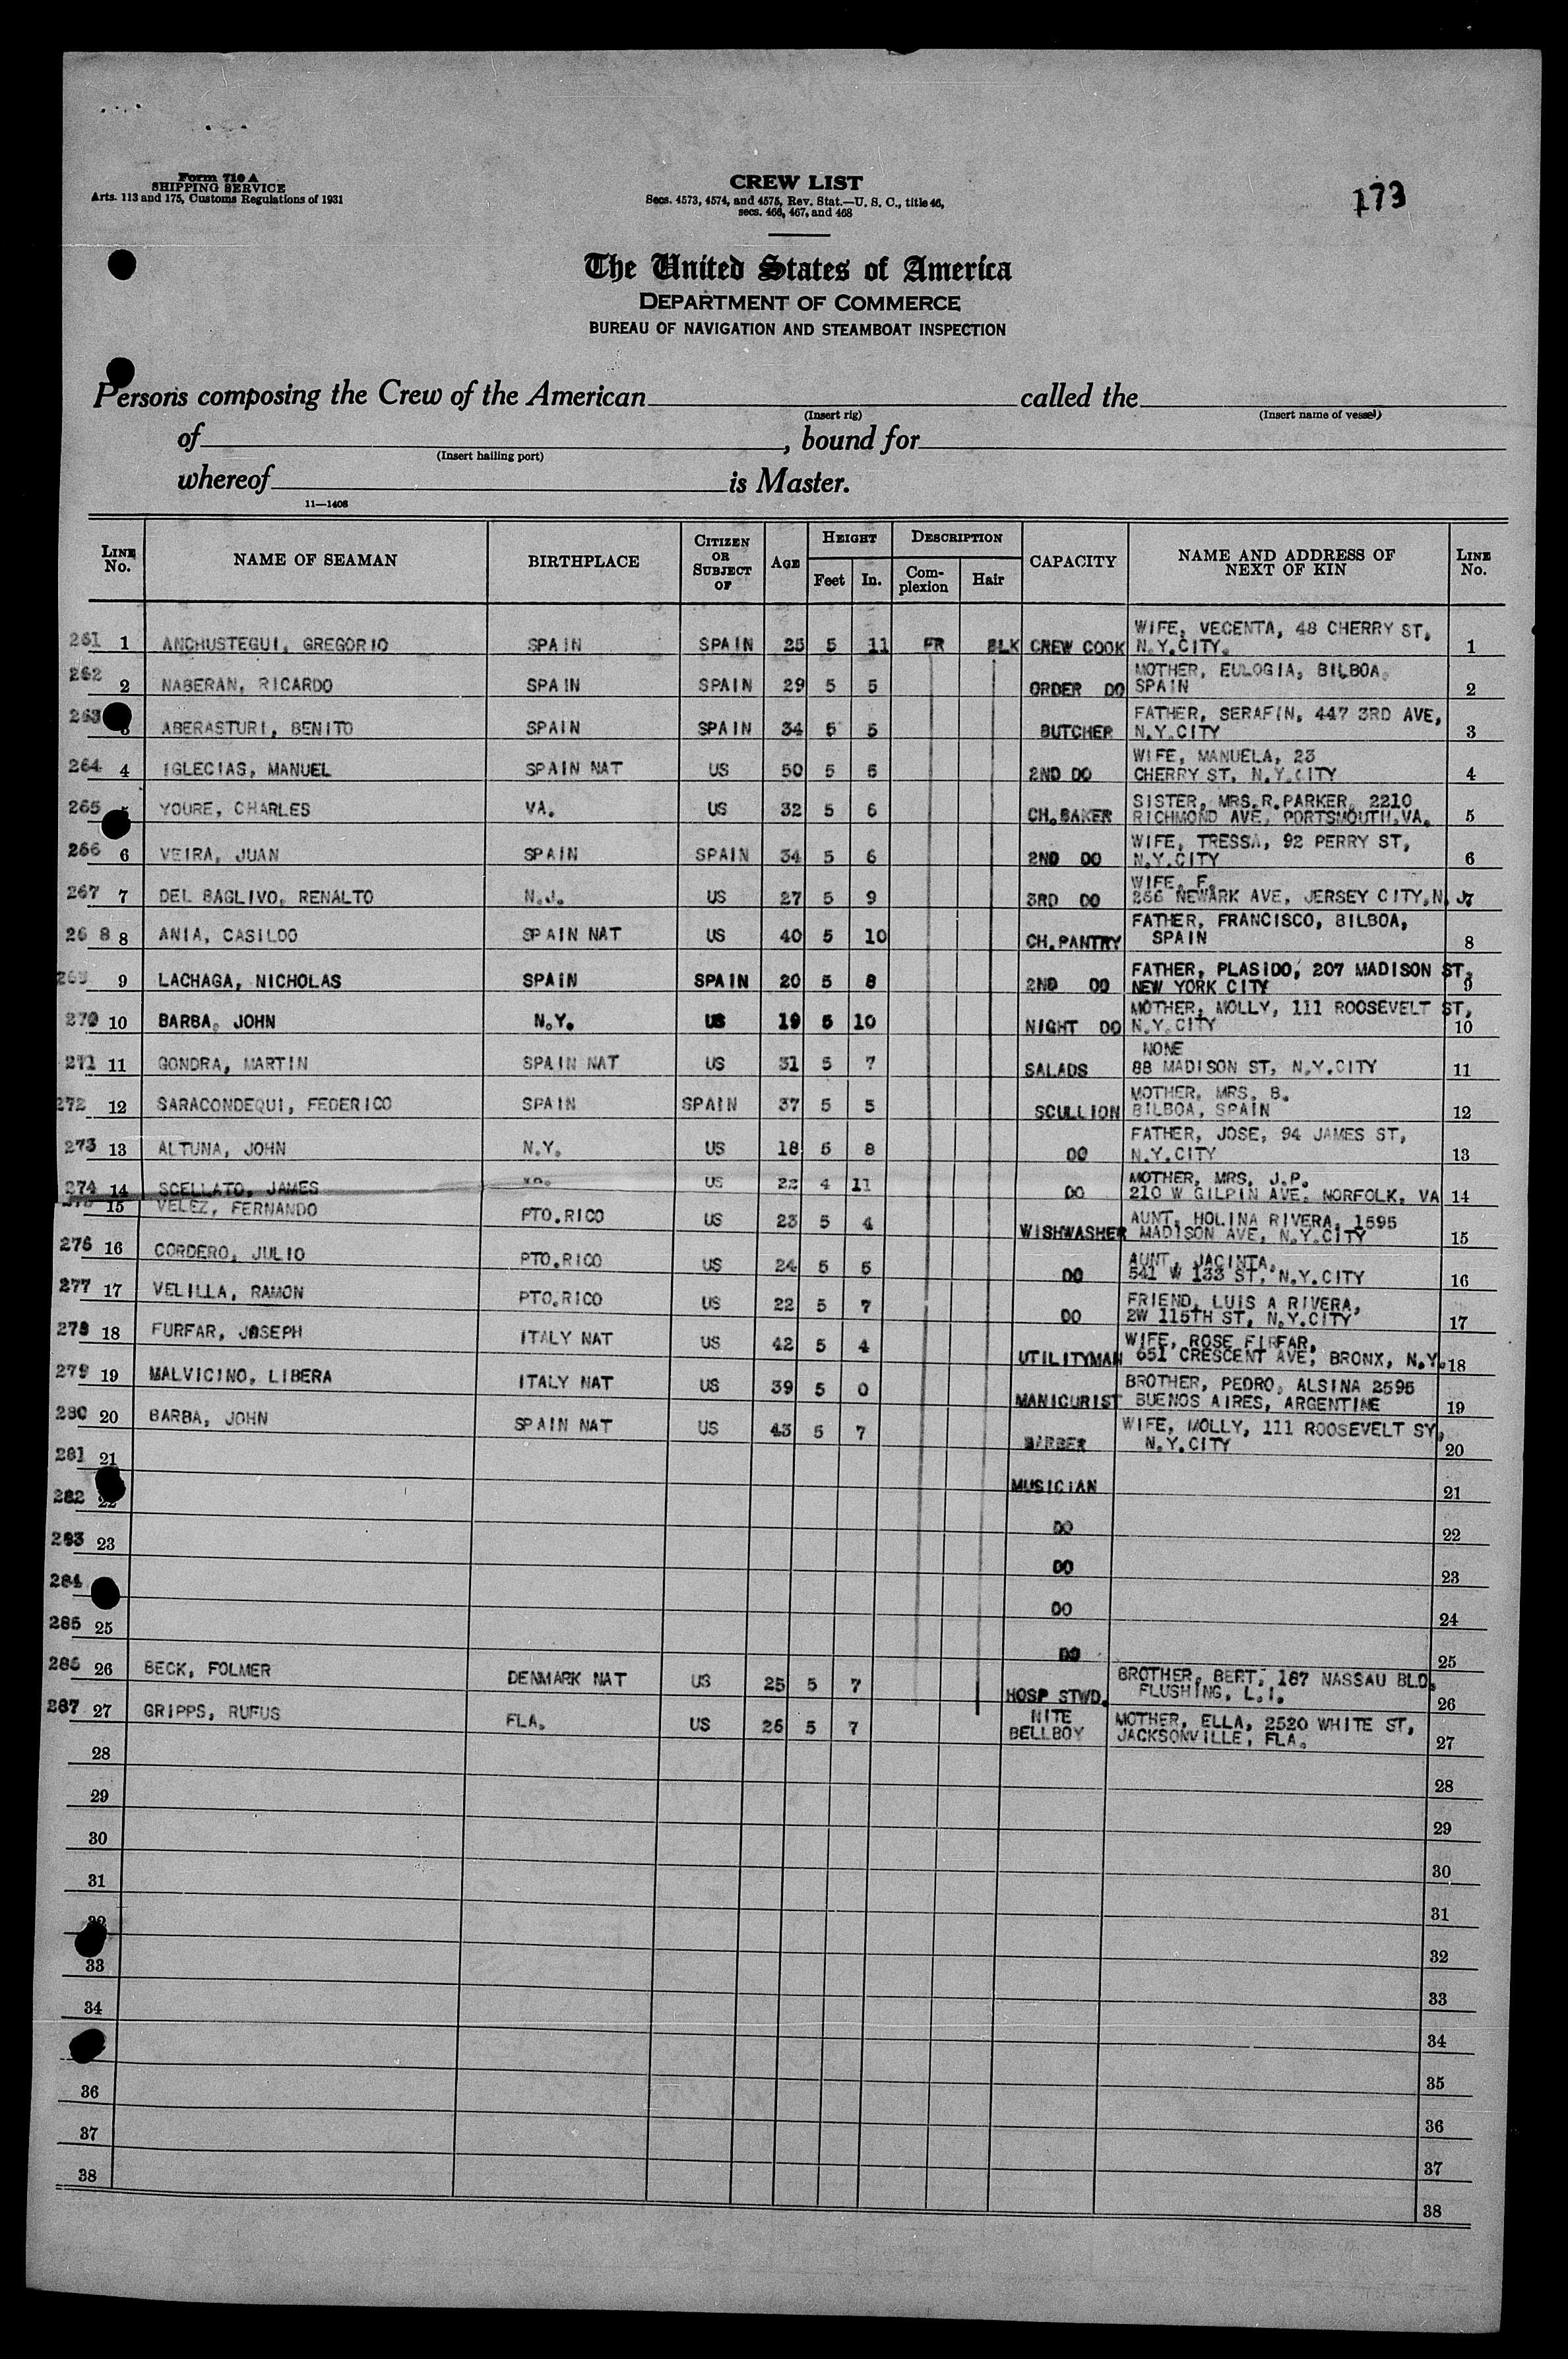 Form 710 A
SHIPPING SERVICE
Arts. 113 and 175, Customs Regulations of 1931
CREW LIST
Secs. 4573, 4574, and 4575, Rev. Stat.—U. S. C., title 46,
secs. 466, 467, and 468
173
The United States of America
DEPARTMENT OF COMMERCE
BUREAU OF NAVIGATION AND STEAMBOAT INSPECTION
Persons composing the Crew of the American called the
(Insert rig) (Insert name of vessel)
of , bound for
(Insert hailing port)
whereof is Master.
11—1408
LINE No. NAME OF SEAMAN BIRTHPLACE CITIZEN OR SUBJECT OF AGE HEIGHT Feet In. DESCRIPTION Complexion Hair CAPACITY NAME AND ADDRESS OF NEXT OF KIN LINE No.
261 1 ANCHUSTEGUI, GREGORIO SPAIN SPAIN 25 5 11 FR BLK CREW COOK WIFE, VECENTA, 48 CHERRY ST, N.Y.CITY. 1
262 2 NABERAN, RICARDO SPAIN SPAIN 29 5 5 ORDER DO MOTHER, EULOGIA, BILBOA, SPAIN 2
263 3 ABERASTURI, BENITO SPAIN SPAIN 34 5 5 BUTCHER FATHER, SERAFIN, 447 3RD AVE, N.Y.CITY 3
264 4 IGLECIAS, MANUEL SPAIN NAT US 50 5 5 2ND DO WIFE, MANUELA, 23 CHERRY ST, N.Y.CITY 4
265 5 YOURE, CHARLES VA. US 32 5 6 CH.BAKER SISTER, MRS.R.PARKER, 2210 RICHMOND AVE, PORTSMOUTH.VA. 5
266 6 VEIRA, JUAN SPAIN SPAIN 34 5 6 2ND DO WIFE, TRESSA, 92 PERRY ST, N.Y.CITY 6
267 7 DEL BAGLIVO, RENALTO N.J. US 27 5 9 3RD DO WIFE, F. 256 NEWARK AVE, JERSEY CITY,N.J. 7
268 8 ANIA, CASILDO SPAIN NAT US 40 5 10 CH.PANTRY FATHER, FRANCISCO, BILBOA, SPAIN 8
269 9 LACHAGA, NICHOLAS SPAIN SPAIN 20 5 8 2ND DO FATHER, PLASIDO, 207 MADISON ST, NEW YORK CITY 9
270 10 BARBA, JOHN N.Y. US 19 5 10 NIGHT DO MOTHER, MOLLY, 111 ROOSEVELT ST, N.Y.CITY 10
271 11 GONDRA, MARTIN SPAIN NAT US 31 5 7 SALADS NONE 88 MADISON ST, N.Y.CITY 11
272 12 SARACONDEQUI, FEDERICO SPAIN SPAIN 37 5 5 SCULLION MOTHER, MRS. B. BILBOA, SPAIN 12
273 13 ALTUNA, JOHN N.Y. US 18 5 8 DO FATHER, JOSE, 94 JAMES ST, N.Y.CITY 13
274 14 SCELLATO, JAMES US 22 4 11 DO MOTHER, MRS. J.P. 210 W GILPIN AVE. NORFOLK, VA 14
15 VELEZ, FERNANDO PTO.RICO US 23 5 4 WISHWASHER AUNT, HOLINA RIVERA, 1595 MADISON AVE, N.Y.CITY 15
276 16 CORDERO, JULIO PTO.RICO US 24 5 5 DO AUNT, JACINTA, 541 W 133 ST, N.Y.CITY 16
277 17 VELILLA, RAMON PTO.RICO US 22 5 7 DO FRIEND, LUIS A RIVERA, 2W 115TH ST, N.Y.CITY 17
278 18 FURFAR, JOSEPH ITALY NAT US 42 5 4 UTILITYMAN WIFE, ROSE FIRFAR, 651 CRESCENT AVE, BRONX, N.Y. 18
279 19 MALVICINO, LIBERA ITALY NAT US 39 5 0 MANICURIST BROTHER, PEDRO, ALSINA 2595 BUENOS AIRES, ARGENTINE 19
280 20 BARBA, JOHN SPAIN NAT US 43 5 7 BARBER WIFE, MOLLY, 111 ROOSEVELT SY, N.Y.CITY 20
281 21 MUSICIAN 21
282 22 DO 22
283 23 DO 23
284 DO 24
285 25 DO 25
286 26 BECK, FOLMER DENMARK NAT US 25 5 7 HOSP STWD. BROTHER, BERT, 187 NASSAU BLD, FLUSHING, L.I. 26
287 27 GRIPPS, RUFUS FLA. US 26 5 7 NITE BELLBOY MOTHER, ELLA, 2520 WHITE ST, JACKSONVILLE, FLA. 27
28 28
29 29
30 30
31 31
32 32
33 33
34 34
35
36 36
37 37
38 38